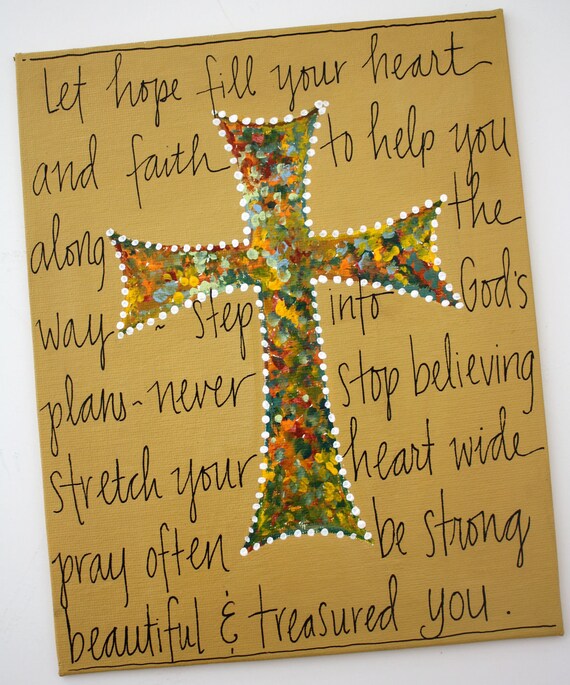 Let hope fill your heart
and faith to help you
along the
way ~ step into God's
plans ~ never stop believing
stretch your heart wide
pray often be strong
beautiful & treasured you.